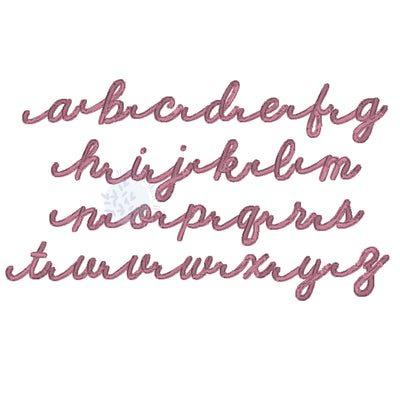 abcdefg
hijklm
nopqrrs
tuvwxyz